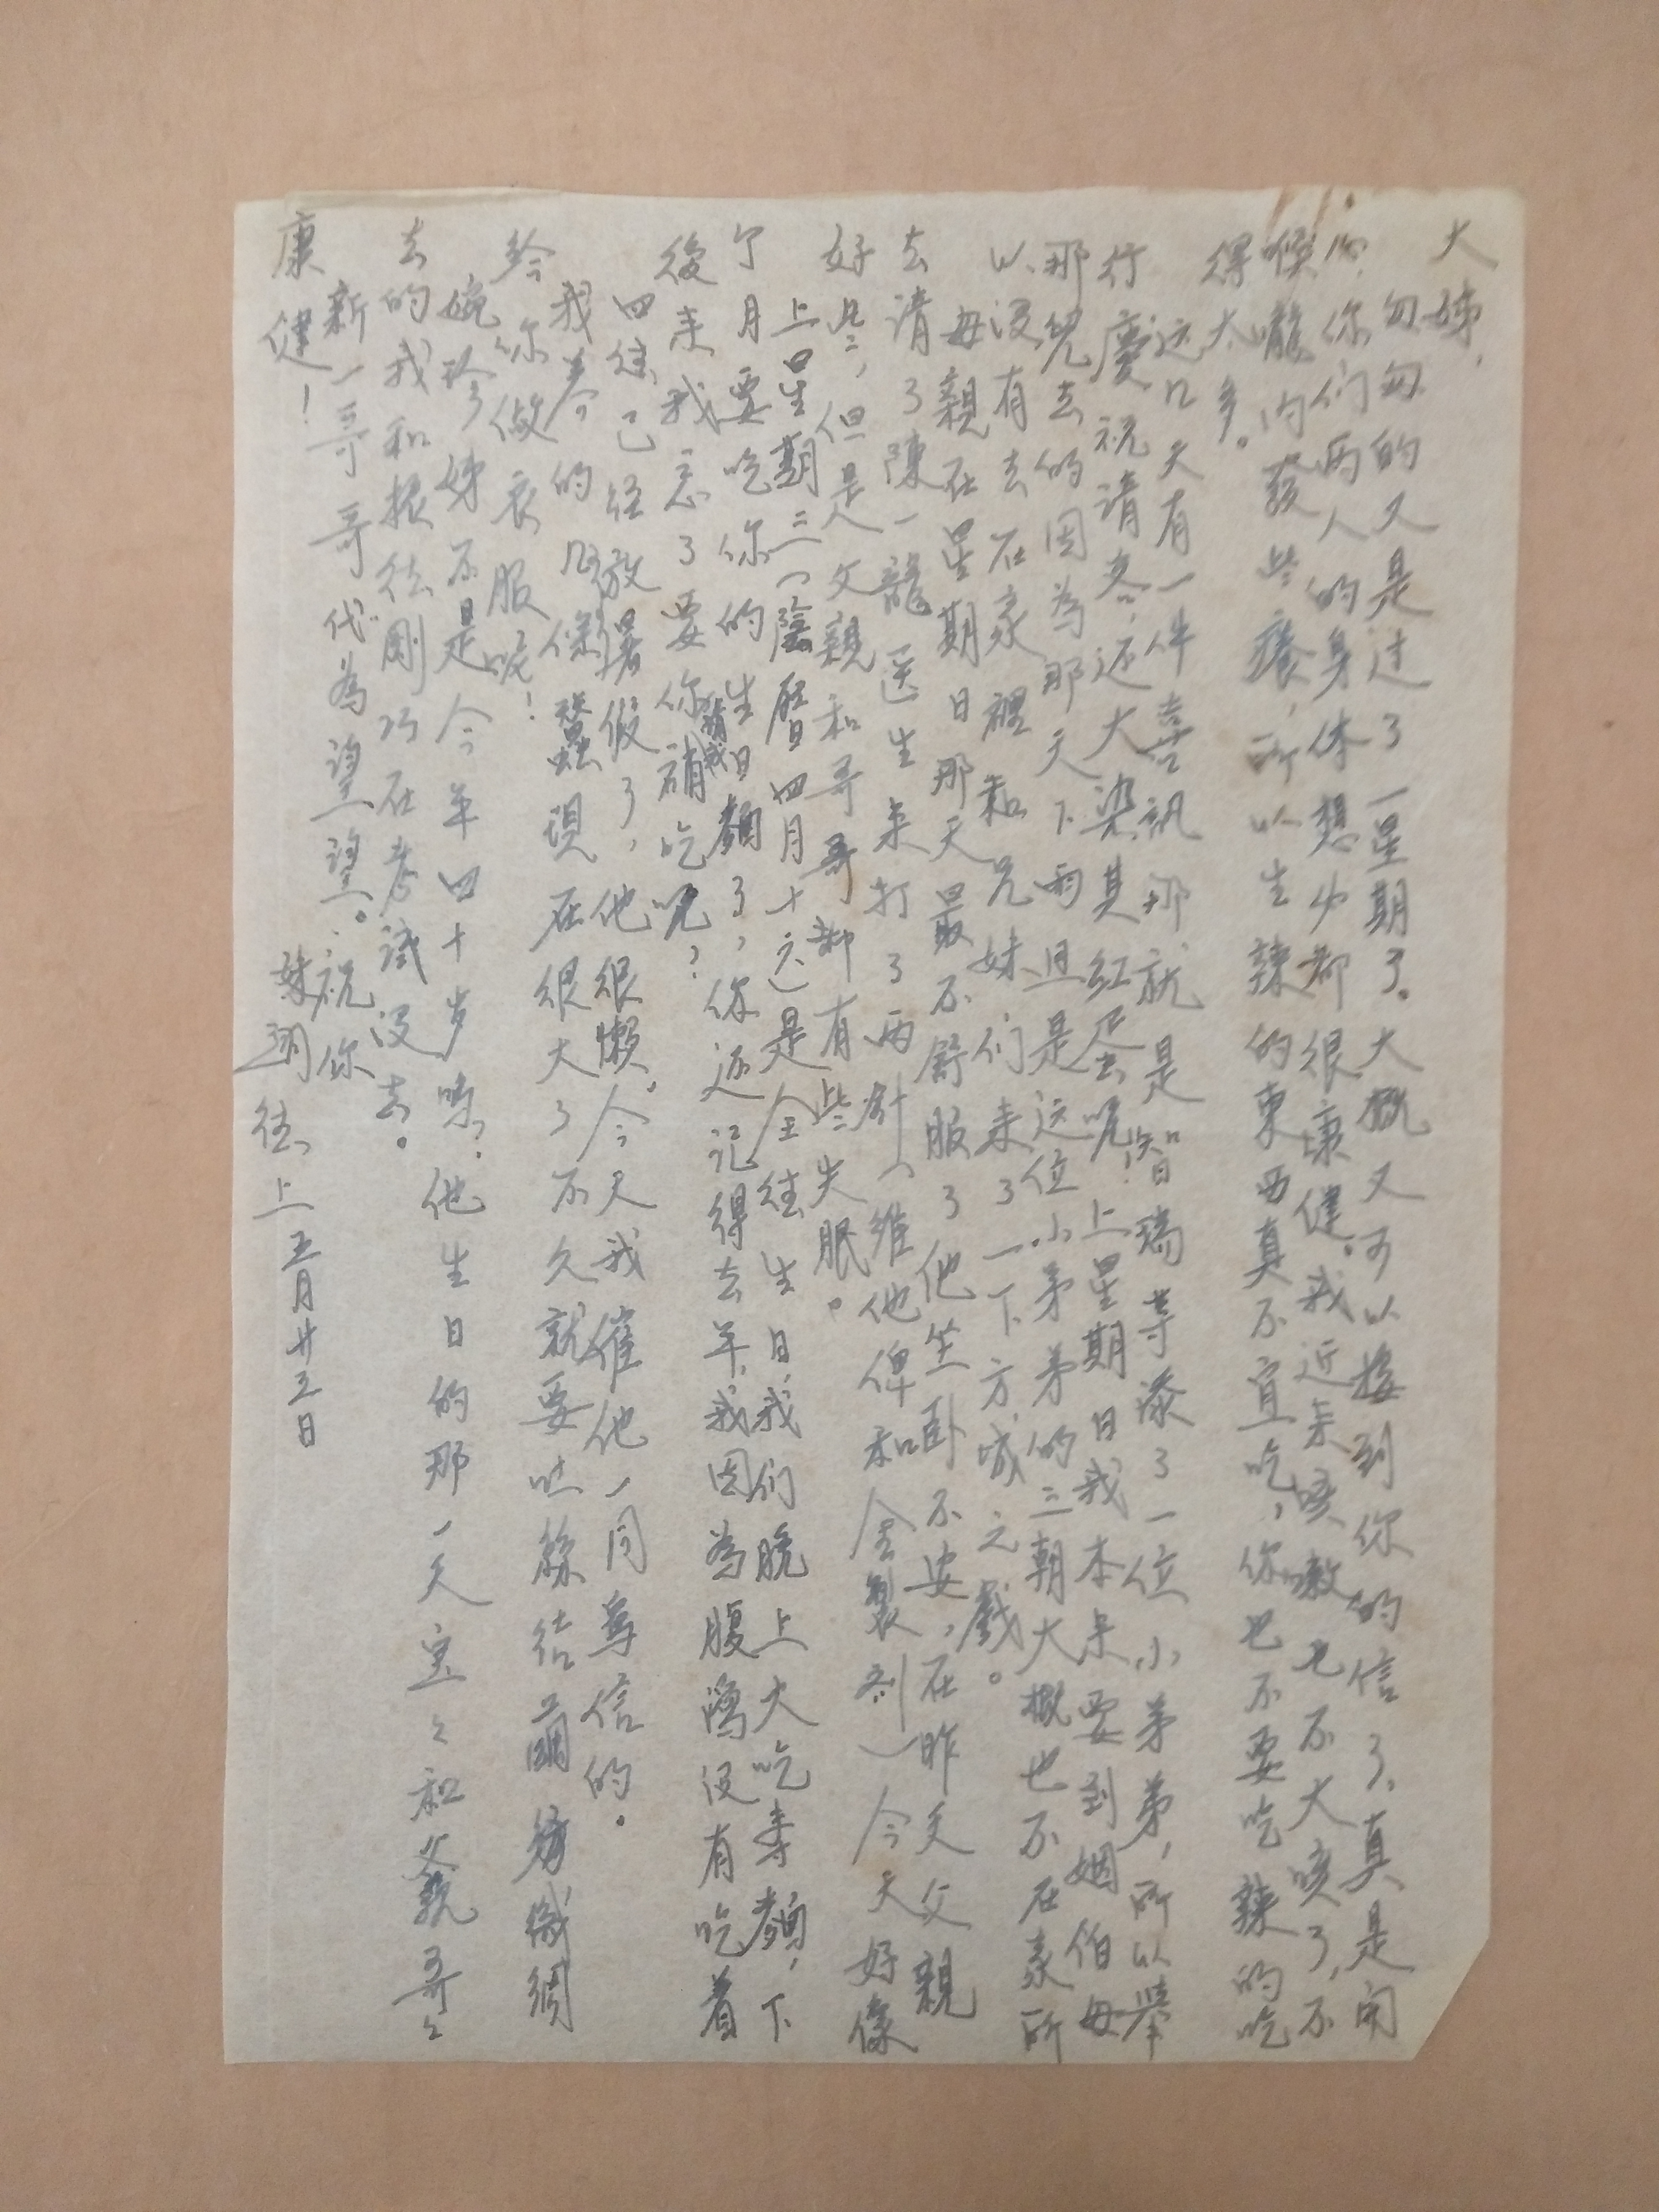 大姊，
匆匆的又是过了一星期了。大概又可以接到你的信了，真是開
心。你们两人的身体想必都很康健。我近来咳嗽也不大咳了，不
喉嚨内發些癢，所以生辣的東西真不宜吃，你也不要吃辣的吃
得太多。
这几天有一件喜訊那就是智瑞等添了一位小弟弟，所以舉
行慶祝請客，还大染其紅蛋呢！上星期日我本来要到姻伯母
那兒去的因為那天下雨且是这位小弟弟的三朝大概也不在家所
以没有去在家裡和兄妹们来了一下方城之戲。
母親在星期日那天最不舒服了他坐卧不安，在昨天父親
去请了陳一龍医生来打了兩針（維他俾和全製剂）今天好像
好些，但是父親和哥哥都有些失眠。
上星期三（陰曆四月十六）是全徃生日，我们晚上大吃寿麵，下
个月要吃你的生日麵了，你还记得去年，我因為腹瀉没有吃着
後来我忘了要你請我補吃呢？
四徃已经放暑假了，他很懒。今天我催他一同写信的。
我养的几條蠶現在很大了不久就要吐絲结繭織綢
给你做衣服呢！
婉珍姊不是今年四十岁嗎？他生日的那一天宝々和父親哥々
去的我和振徃剛巧在考試没去。
新一哥哥代為望一望。祝你
康健！
妹 徃上 五月廿三日